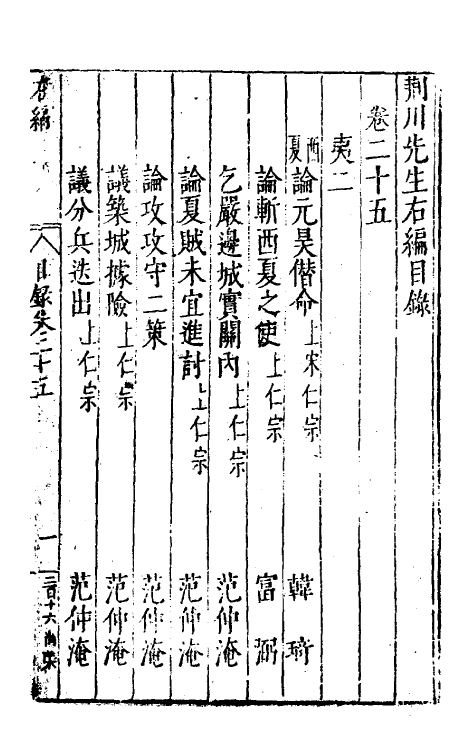 荆川先生右編目錄
卷二十五
夷二
西夏論元昊僭命上宋仁宗 韓琦
論斬西夏之使上仁宗 富弼
乞嚴邊城實關內上仁宗 范仲淹
論夏賊未宜進討上仁宗 范仲淹
論攻攻守二策 范仲淹
議築城據險上仁宗 范仲淹
議分兵迭出上仁宗 范仲淹
右編 目錄卷二十五 一 二百十六